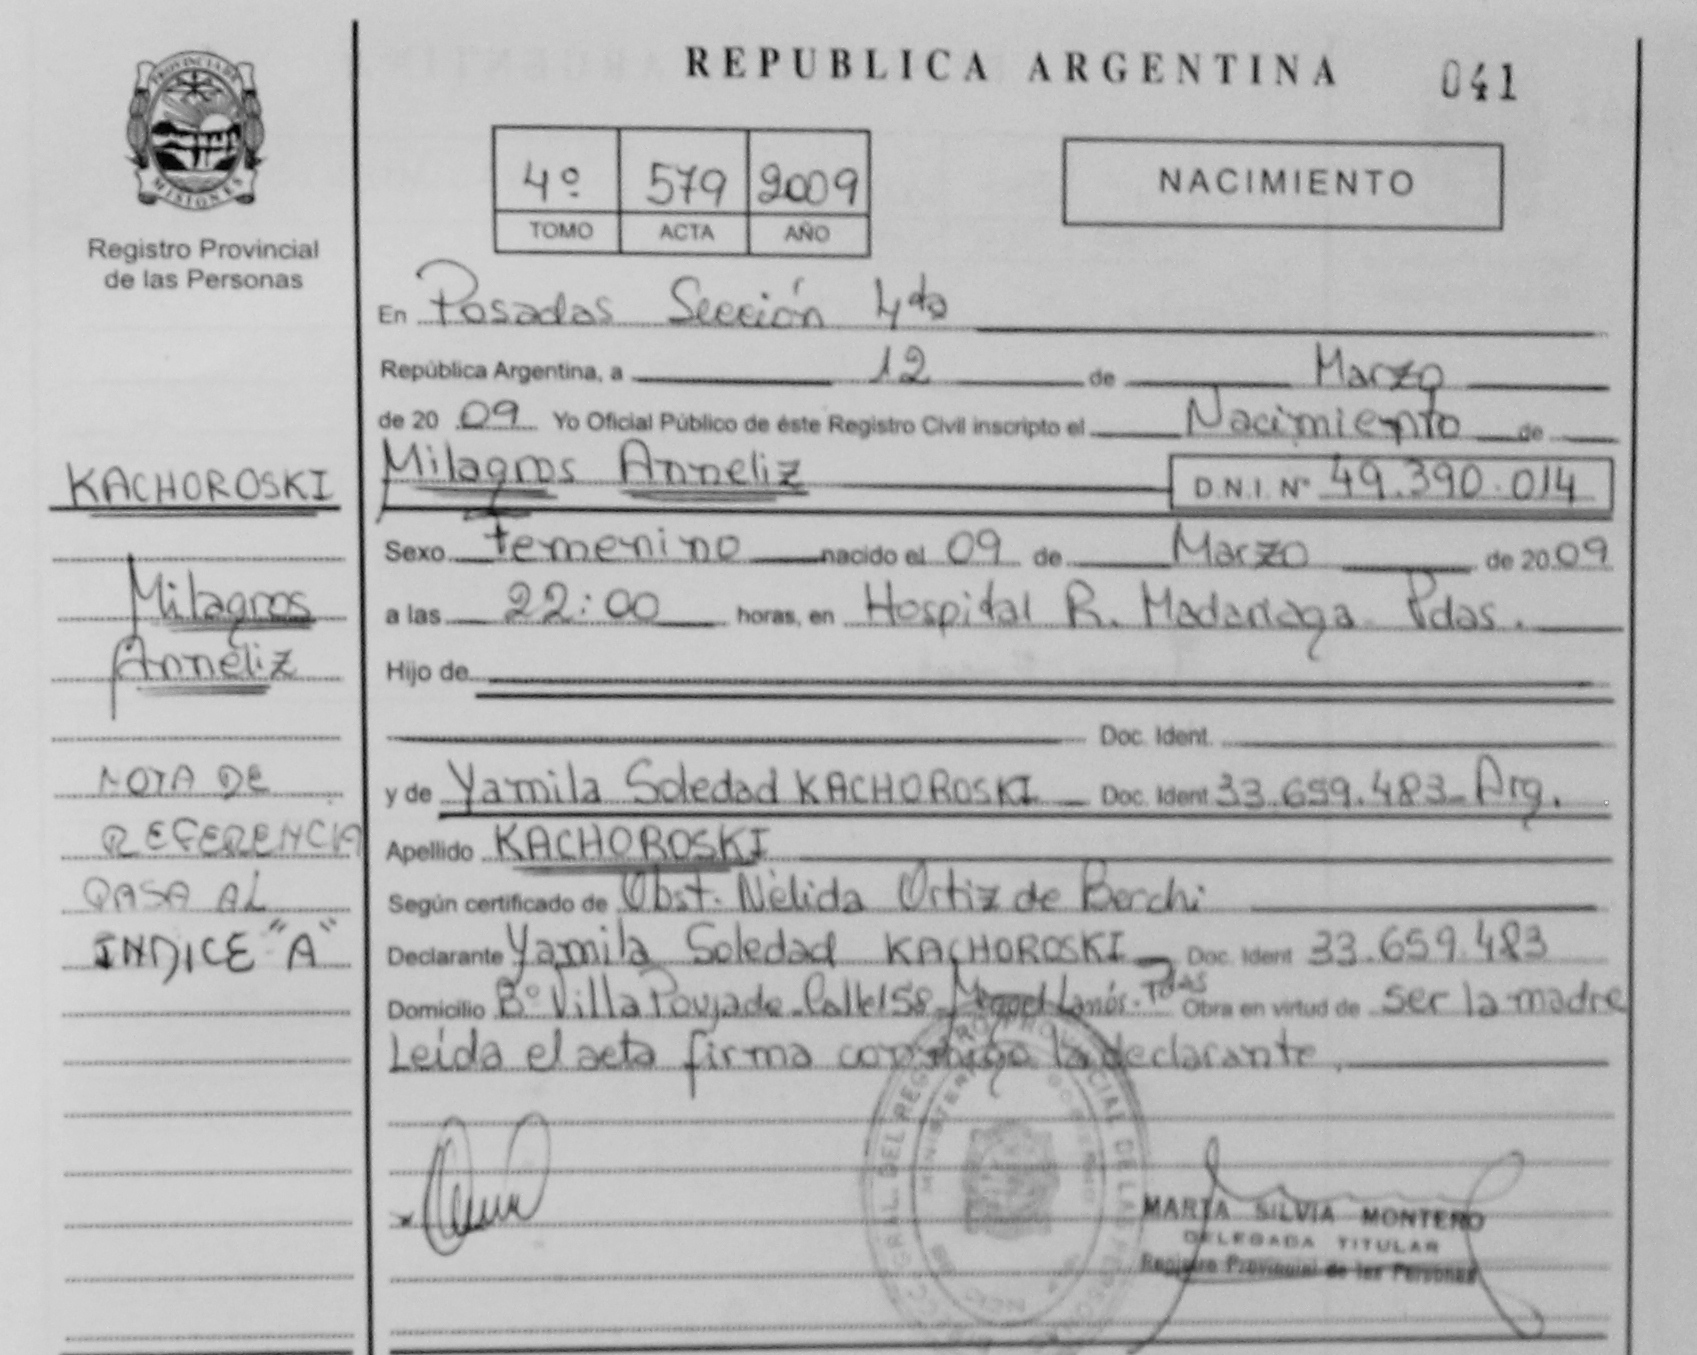 PROVINCIA DE
MISIONES
Registro Provincial
de las Personas
REPUBLICA ARGENTINA 041
4º 579 2009
TOMO ACTA AÑO
NACIMIENTO
En Posadas Sección 4ta
República Argentina, a 12 de Marzo
de 20 09 Yo Oficial Público de éste Registro Civil inscripto el Nacimiento de
Milagros Anneliz D.N.I. Nº 49.390.014
Sexo femenino nacido el 09 de Marzo de 20 09
a las 22:00 horas, en Hospital R. Madariaga Pdas.
Hijo de
Doc. Ident.
y de Yamila Soledad KACHOROSKI Doc. Ident 33.659.483 Arg.
Apellido KACHOROSKI
Según certificado de Obst. Nélida Ortiz de Berchi
Declarante Yamila Soledad KACHOROSKI Doc. Ident 33.659.483
Domicilio Bº Villa Poujade Calle 158 Miguel Lanús - Pdas Obra en virtud de ser la madre
Leída el acta firma conmigo la declarante.
KACHOROSKI
Milagros
Anneliz
NOTA DE
REFERENCIA
PASA AL
INDICE "A"
MARTA SILVIA MONTERO
DELEGADA TITULAR
Registro Provincial de las Personas